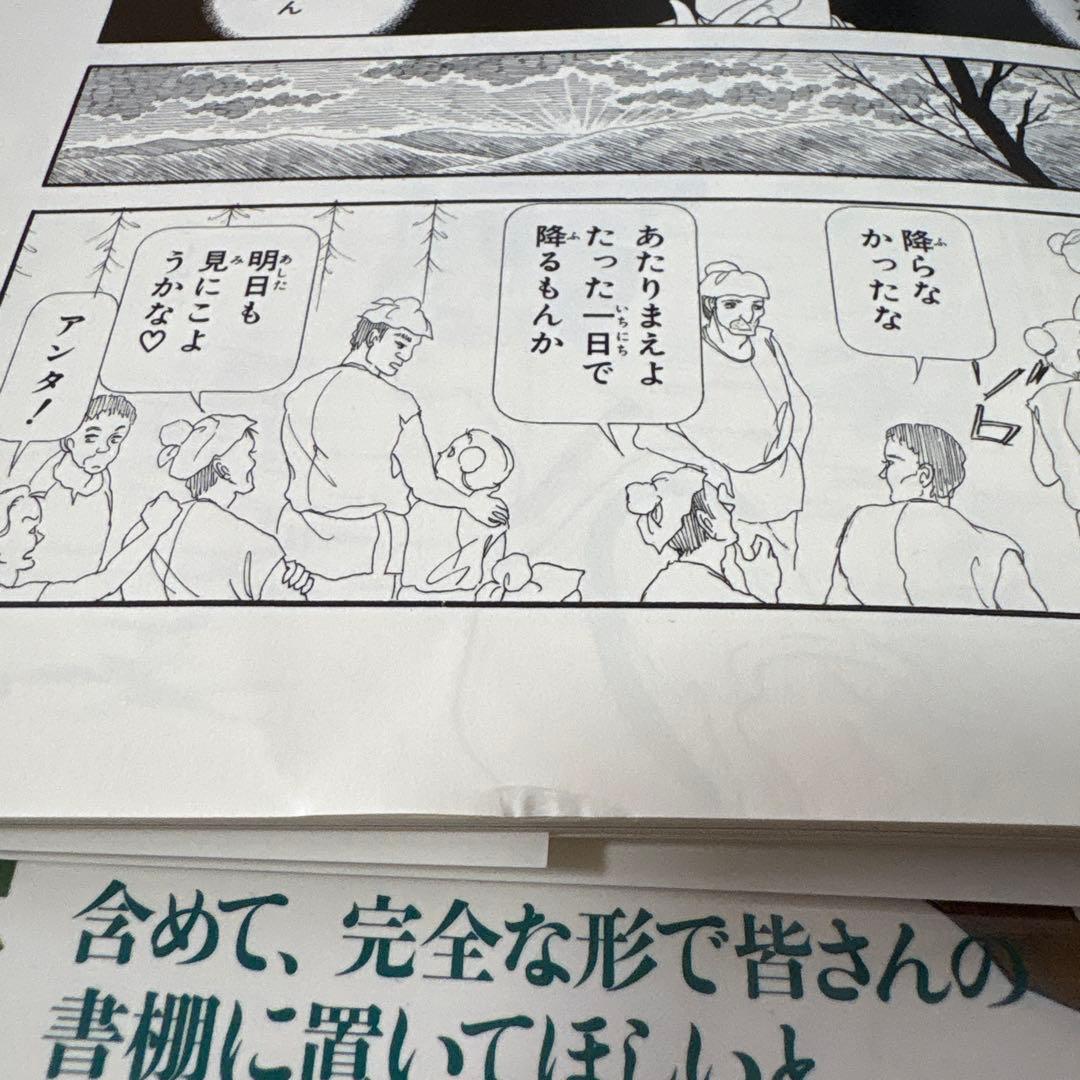 ん
降らな
かったな
あたりまえよ
たった一日で
降るもんか
明日も
見にこよ
うかな♡
アンタ!
含めて、完全な形で皆さんの
書棚に置いてほしいと